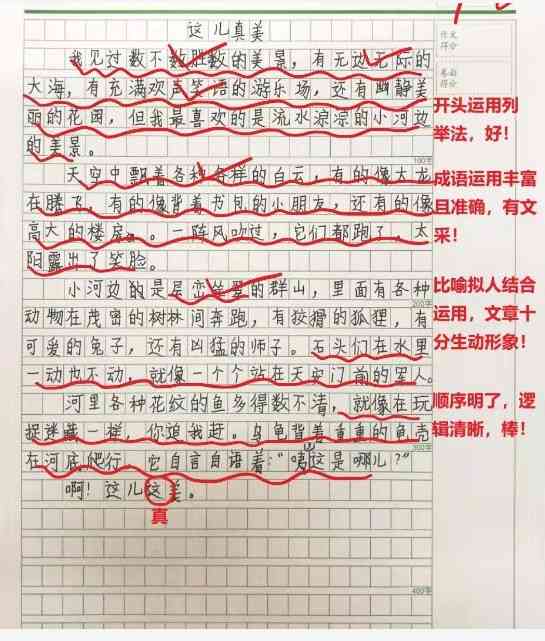 这儿真美
作文
得分
我见过数不数胜数的美景，有无边无际的
大海，有充满欢声笑语的游乐场，还有幽静美
丽的花园，但我最喜欢的是流水淙淙的小河边
的美景。
开头运用列
举法，好！
100字
天空中飘着各种各样的白云，有的像大龙
在腾飞，有的像背着书包的小朋友，还有的像
高大的楼房。。一阵风吹过，它们都跑了，太
阳露出了笑脸。
成语运用丰富
且准确，有文
采！
小河边的是层峦叠翠的群山，里面有各种
200字
动物在茂密的树林间奔跑，有狡猾的狐狸，有
可爱的兔子，还有凶猛的师子。石头们在水里
一动也不动，就像一个个站在天安门前的军人。
比喻拟人结合
运用，文章十
分生动形象！
河里各种花纹的鱼多得数不清，就像在玩
捉迷藏一样，你追我赶。乌龟背着重重的龟壳
300字
在河底爬行，它自言自语着：“咦这是哪儿？”
顺序明了，逻
辑清晰，棒！
啊！这儿这美。
真
400字